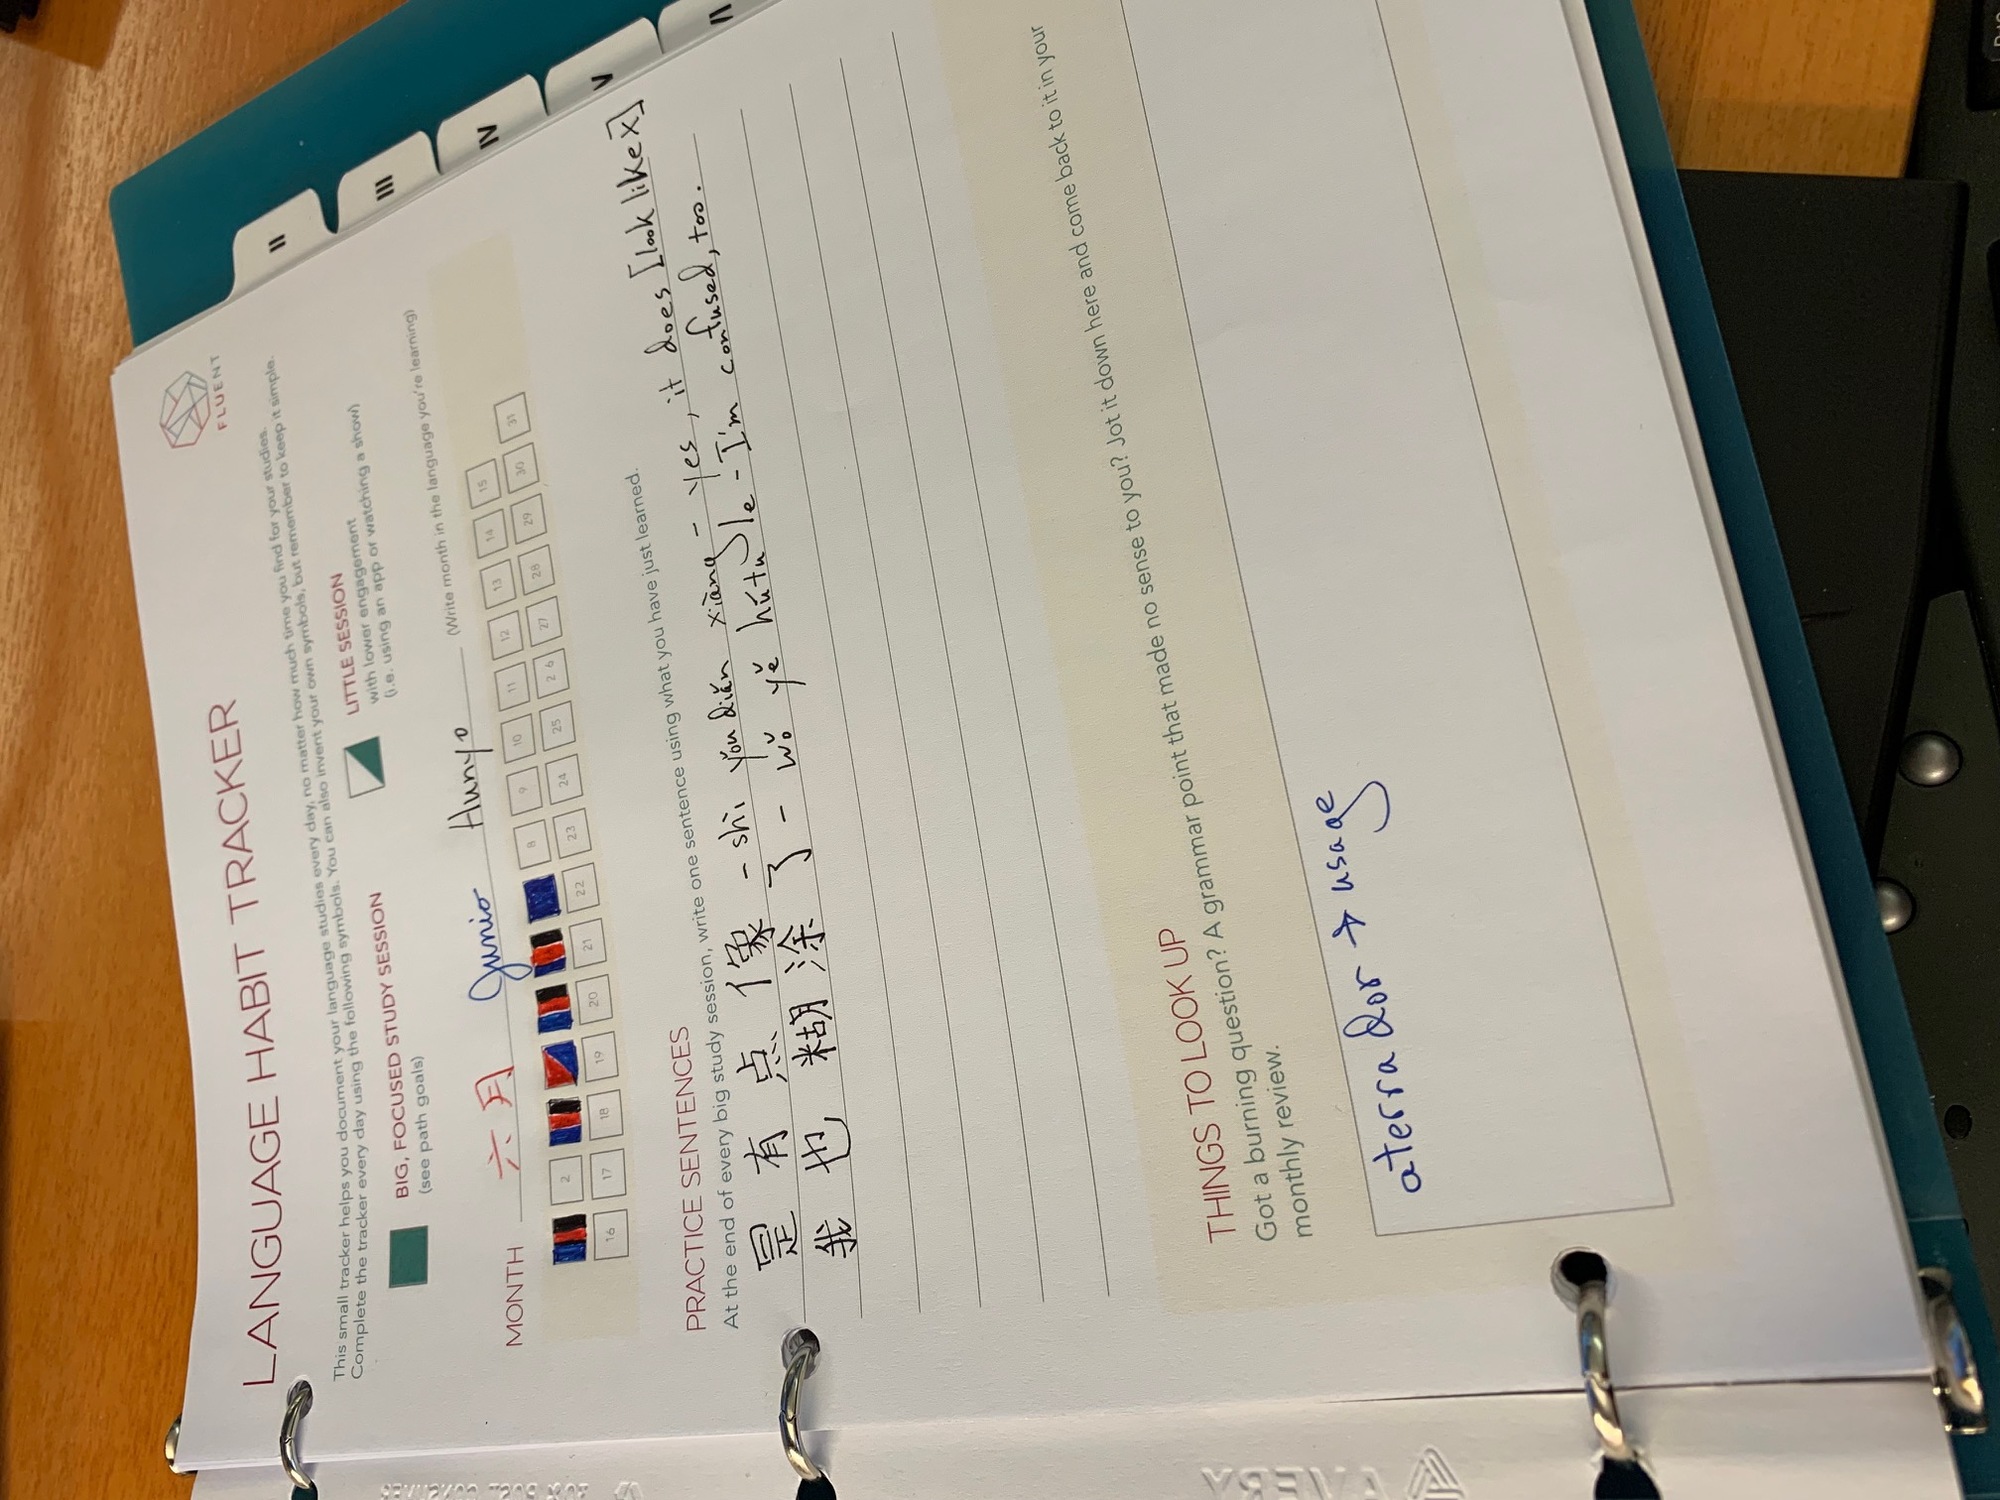 LANGUAGE HABIT TRACKER
FLUENT
This small tracker helps you document your language studies every day, no matter how much time you find for your studies.
Complete the tracker every day using the following symbols. You can also invent your own symbols, but remember to keep it simple.
BIG, FOCUSED STUDY SESSION
(see path goals)
LITTLE SESSION
with lower engagement
(i.e. using an app or watching a show)
MONTH 六月 Junio Hunyo (Write month in the language you're learning)
2 8 9 10 11 12 13 14 15
16 17 18 19 20 21 22 23 24 25 26 27 28 29 30 31
PRACTICE SENTENCES
At the end of every big study session, write one sentence using what you have just learned.
是有点像 - shì yǒu diǎn xiàng - Yes, it does [look like X]
我也糊涂了 - wǒ yě hútu le - I'm confused, too.
THINGS TO LOOK UP
Got a burning question? A grammar point that made no sense to you? Jot it down here and come back to it in your
monthly review.
aterrador → usage
II
III
IV
V
VI
AVERY